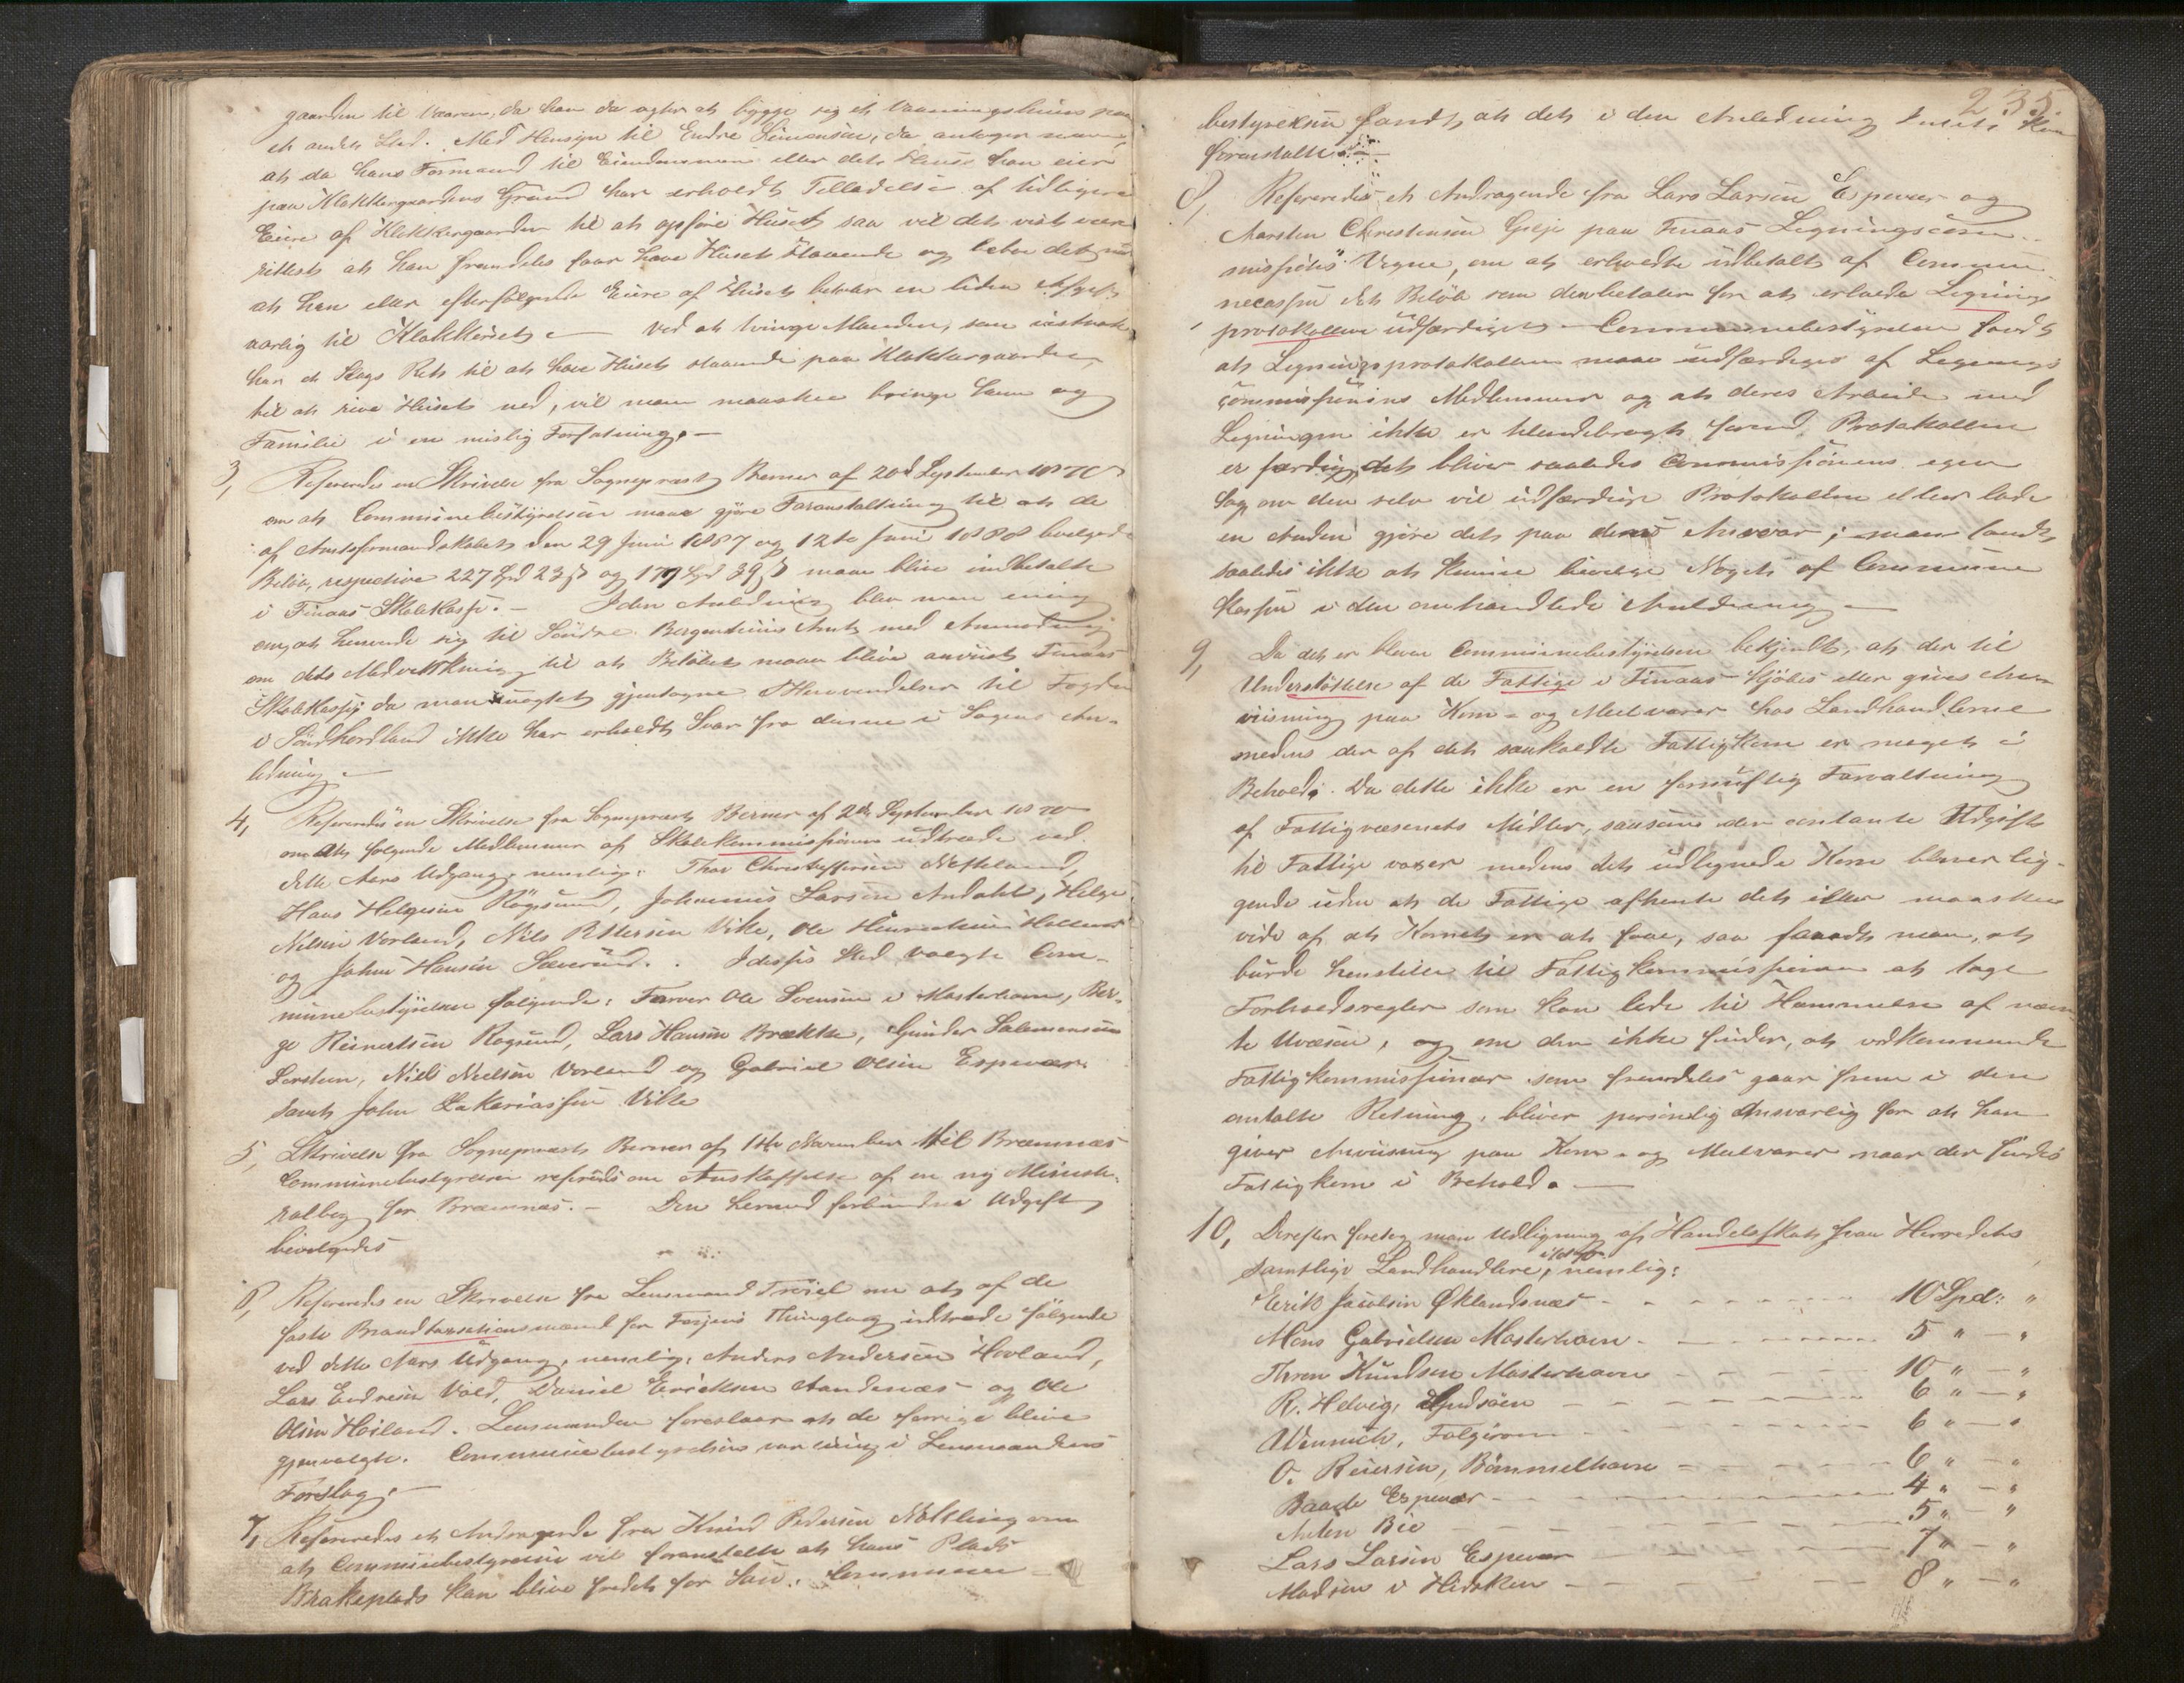 gaarden til Vaaren, da han da agter at bygge sig et Vaaningshuus paa
et andet Sted. Med Hensyn til Endre Simonsen, da antager man,
at da hans Formand til Eiendommen eller det Huus han eier
paa Klokkergaardens Grund har erholdt Tilladelse af tidligere
Eiere af Klokkergaarden til at opføre Huset saa vil det vist være
rettest at han fremdeles faar have Huset staaende og
at han eller efterfølgende Eiere af Huset betaler en liden Afgift
aarlig til Klokkeriet. — Ved at tvinge Manden, som
har et Slags Ret til at have Huset staaende paa Klokkergaarden,
til at rive Huset ned, vil man maaskee bringe ham og
Familie i en mislig Forfatning. —
3, Refereredes en Skrivelse fra Sognepræst Berner af 20d September 1870
om at Communebestyrelsen maa gjøre Foranstaltning til at de
af Amtsformandskabet den 29 Juni 1867 og 12te Juni 1868 bevilgede
Beløb, respective 227 Spd 23 ß og 179 Spd 39 ß maa blive indbetalte
i Finaas Skolekasse. — I den Anledning blev man enig
om, at henvende sig til Søndre Bergenhuus Amt med Anmodning
om dets Medvirkning til at Beløbet maa blive anviist Finaas
Skolekasse, da man uagtet gjentagne Henvendelser til Fogden
i Søndhordland ikke har erholdt Svar fra denne i Sagens An-
ledning. —
4, Refereredes en Skrivelse fra Sognepræst Berner af September 1870
om at følgende Medlemmer af Skolekommissionen udtræde ved
dette Aars Udgang, nemlig: Thor Christoffersen Røkland,
Hans Helgesen Røgsund, Johannes Larsen Andahl, Helge
Nelsen Vorland, Nils Pettersen Vike, Ole Henriksen
og John Hansen Sæverud. I disses Sted valgte Com-
munebestyrelsen følgende: Farver Ole Svensen i Mosterhavn, Bør-
ge Reinertsen Røgsund, Lars Hansen Brække, Gunder Salomonsen
Serstein, Niels Nielsen Vorland og Gabriel Olsen Espevær
samt John Zakariassen Vike
5, Skrivelse fra Sognepræst Berner af 1ste November til Bremnæs
Communebestyrelse refereredes om Anskaffelse af en ny Ministe-
rialbog for Bremnæs. — Den herved forbundne Udgift
bevilgedes
6, Refereredes en Skrivelse fra Lensmand om at af de
faste Brandtaxationsmænd for Føyens Thinglag udtræde følgende
ved dette Aars Udgang, nemlig: Anders Andersen Hovland,
Lars Endresen Vold, Daniel Ericksen Aandenæs og Ole
Olsen Høiland. Lensmanden foreslaar at de forrige blive
gjenvalgte. Communebestyrelsen var enig i Lensmandens
Forslag. —
7, Refereredes et Andragende fra Knud Pedersen Nøttling om
at Communebestyrelsen vil foranstalte at hans Plads
Brakeplads kan blive fredet for Commune-
235
bestyrelsen fandt, at det i den Anledning Intet kan
foranstalte. —
8, Refereredes et Andragende fra Lars Larsen Espevær og
Karsten Christensen Geije paa Finaas Ligningscom-
missions Vegne, om at erholdte udbetalt af Commu-
necassen det Beløb som den betaler for at erholde Lignings
protokollen udfærdiget. — Communebestyrelsen fandt
at Ligningsprotokollen maa udfærdiges af Lignings-
commissionens Medlemmer og at deres Arbeide med
Ligningen ikke er tilendebragt førend Protokollen
er færdig, det bliver saaledes Commissionens egen
Sag om den selv vil udfærdige Protokollen eller lade
en Anden gjøre det paa dens Ansvar; man fandt
saaledes ikke at kunne bevilge Noget af Commune
kassen i den omhandlede Anledning. —
9, Da det er bleven Communebestyrelsen bekjendt, at der til
Understøttelse af de Fattige i Finaas kjøbes eller gives An-
viisning paa Korn- og Meelvarer hos Landhandlerne
medens der af det saakaldte Fattigkorn er meget i
Behold. Da dette ikke er en fornuftig Forvaltning
af Fattigvæsenets Midler, saasom den contante Udgift
til Fattige voxer medens det udlignede Korn bliver lig-
gende uden at de Fattige afhente det eller maaskee
vide af at Kornet er at faae, saa fandt man, at
burde henstille til Fattigkommissionen at tage
Forholdsregler som kan lede til Hemmelse af næv-
te Uvæsen, og om den ikke finder, at vedkommende
Fattigkommissionær som fremdeles gaar frem i den
omtalte Retning, bliver personlig Ansvarlig for at han
giver Anviisning paa Korn- og Meelvarer naar der findes
Fattigkorn i Behold. —
10, Derefter foretog man Udligning af Handelsskat paa Herredets
samtlige Landhandlere, nemlig:
Eerik Jacobsen Øklandsnæs - - - 10 Spd: "
Mons Gabrielsen Mosterhavn - - - 5 " — "
Thron Knudsen Mosterhavn - - - 10 " — "
R. Helvig, - - - 6 " — "
Wernich, Folgerøen - - - 6 " — "
O. Reiersen, Bømmelhavn - - - 6 " — "
Baade Espevær - - - 4 " — "
Anton Bie - - - 5 " — "
Lars Larsen Espevær - - - 7 " — "
Madsen i Hidsken - - - 8 " — "